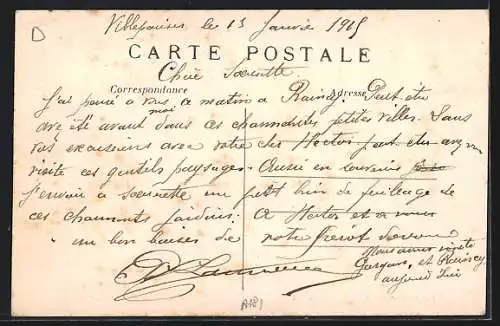 D
Villeparisis le 13 Janvier 1915
CARTE POSTALE
Chère Soeurette
Correspondance
Adresse
J'ai pensé a vous ce matin a Raincy. Peut être
moi
avez été avant dans ces charmantes petites villes. Dans
vos excursions avec votre cher Hector peut être avez vous
visité ces gentils paysages. Aussi en souvenir
J'envoie a soeurette un petit brin de feuillage de
ces charmants jardins. A Hector et a vous
un bon baiser de votre frérot
Nous avons visité
Gargan, et Raincy
aujourd'hui
A181